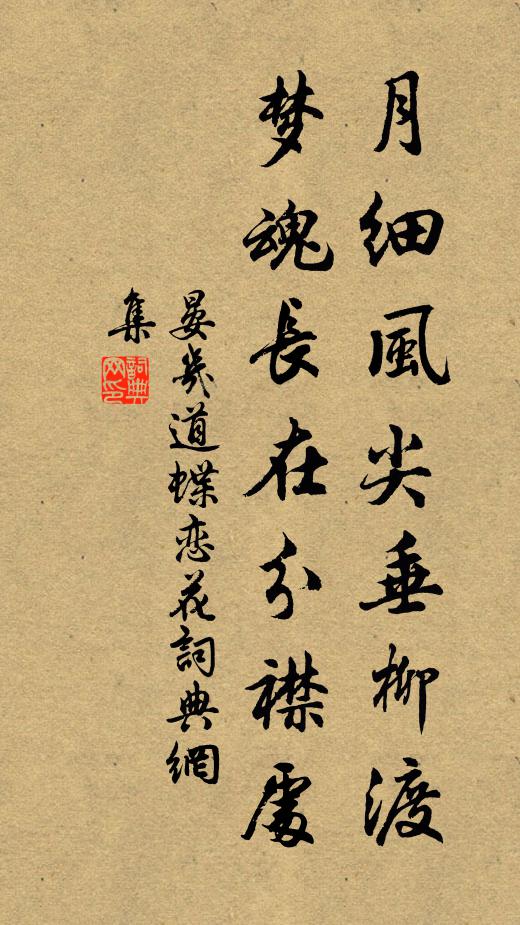 月细風尖垂柳渡
梦魂長在分襟處
晏幾道蝶恋花詞典網
集
詞典网印